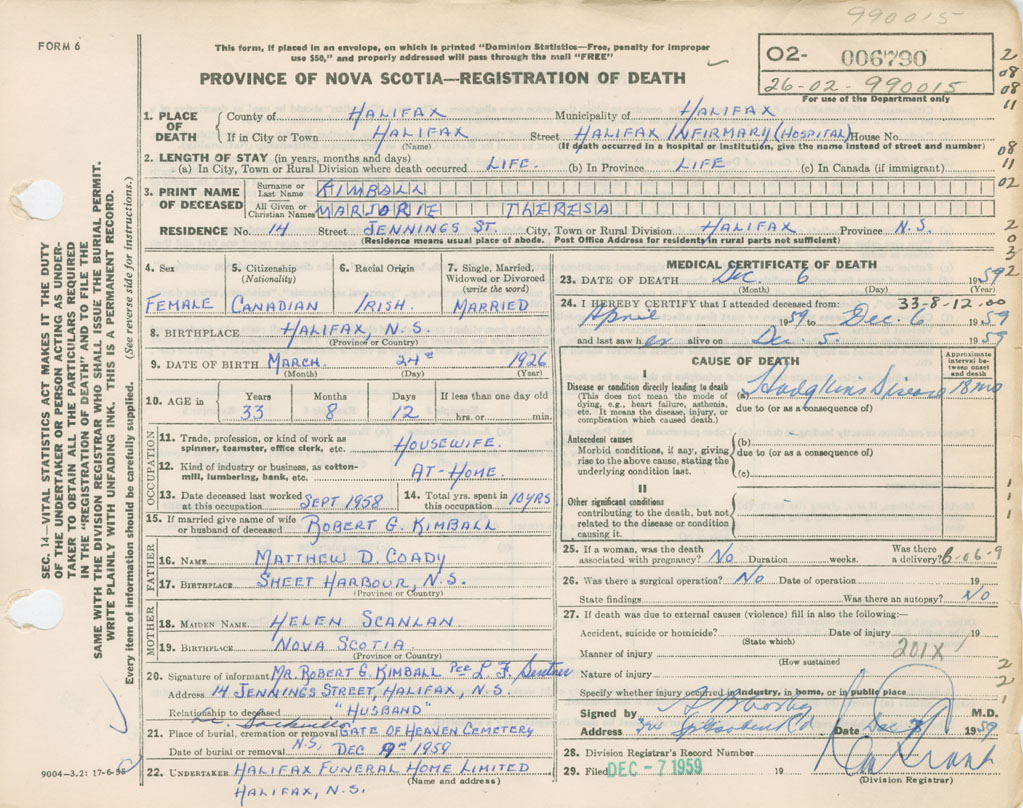 990015
FORM 6
This form, if placed in an envelope, on which is printed "Dominion Statistics—Free, penalty for improper
use $50," and properly addressed will pass through the mail "FREE"
PROVINCE OF NOVA SCOTIA—REGISTRATION OF DEATH
02- 006790
26-02-990015
For use of the Department only
1. PLACE OF DEATH
County of HALIFAX Municipality of HALIFAX
If in City or Town HALIFAX Street HALIFAX INFIRMARY (HOSPITAL) House No.
(Name) (If death occurred in a hospital or institution, give the name instead of street and number)
2. LENGTH OF STAY (in years, months and days)
(a) In City, Town or Rural Division where death occurred LIFE. (b) In Province LIFE (c) In Canada (if immigrant)
3. PRINT NAME OF DECEASED
Surname or Last Name KIMBALL
All Given or Christian Names MARJORIE THERESA
RESIDENCE No. 14 Street JENNINGS ST. City, Town or Rural Division HALIFAX Province N.S.
(Residence means usual place of abode. Post Office Address for residents in rural parts not sufficient)
4. Sex FEMALE
5. Citizenship (Nationality) CANADIAN
6. Racial Origin IRISH.
7. Single, Married, Widowed or Divorced (write the word) MARRIED
8. BIRTHPLACE HALIFAX, N.S.
(Province or Country)
9. DATE OF BIRTH MARCH 24th 1926
(Month) (Day) (Year)
10. AGE in Years 33 Months 8 Days 12 If less than one day old hrs. or min.
OCCUPATION
11. Trade, profession, or kind of work as spinner, teamster, office clerk, etc. HOUSEWIFE.
12. Kind of industry or business, as cotton-mill, lumbering, bank, etc. AT-HOME.
13. Date deceased last worked at this occupation SEPT 1958
14. Total yrs. spent in this occupation 10 YRS
15. If married give name of wife or husband of deceased ROBERT G. KIMBALL
FATHER
16. NAME MATTHEW D. COADY
17. BIRTHPLACE SHEET HARBOUR, N.S.
(Province or Country)
MOTHER
18. MAIDEN NAME HELEN SCANLAN
19. BIRTHPLACE NOVA SCOTIA
(Province or Country)
20. Signature of informant MR. ROBERT G. KIMBALL Per L. F.
Address 14 JENNINGS STREET, HALIFAX, N.S.
Relationship to deceased "HUSBAND"
21. Place of burial, cremation or removal GATE OF HEAVEN CEMETERY
N.S.
Date of burial or removal DEC 9th 1959
22. UNDERTAKER HALIFAX FUNERAL HOME LIMITED
(Name and address)
HALIFAX, N.S.
9004—3.2: 17-6-55
MEDICAL CERTIFICATE OF DEATH
23. DATE OF DEATH Dec. 6 1959
(Month) (Day) (Year)
24. I HEREBY CERTIFY that I attended deceased from: 33-8-12.00
April 1959 to Dec. 6 1959
and last saw her alive on Dec. 5. 1959
CAUSE OF DEATH
Approximate interval between onset and death
I
Disease or condition directly leading to death
(This does not mean the mode of dying, e.g., heart failure, asthenia, etc. It means the disease, injury, or complication which caused death.)
(a) Hodgkins Disease 18 mo
due to (or as a consequence of)
Antecedent causes
Morbid conditions, if any, giving rise to the above cause, stating the underlying condition last.
(b)
due to (or as a consequence of)
(c)
II
Other significant conditions
contributing to the death, but not related to the disease or condition causing it.
25. If a woman, was the death associated with pregnancy? No Duration weeks. Was there a delivery?
26. Was there a surgical operation? No Date of operation 19
State findings Was there an autopsy? No
27. If death was due to external causes (violence) fill in also the following:—
Accident, suicide or homicide? Date of injury 19
(State which)
Manner of injury 201X
(How sustained)
Nature of injury
Specify whether injury occurred in industry, in home, or in public place
Signed by M.D.
Address Date Dec 7 1959
28. Division Registrar's Record Number
29. Filed DEC -7 1959 19
(Division Registrar)
SEC. 14—VITAL STATISTICS ACT MAKES IT THE DUTY
OF THE UNDERTAKER OR PERSON ACTING AS UNDER-
TAKER TO OBTAIN ALL THE PARTICULARS REQUIRED
IN THE "REGISTRATION OF DEATH" AND TO FILE THE
SAME WITH THE DIVISION REGISTRAR WHO SHALL ISSUE THE BURIAL PERMIT.
WRITE PLAINLY WITH UNFADING INK. THIS IS A PERMANENT RECORD.
Every item of information should be carefully supplied. (See reverse side for instructions.)